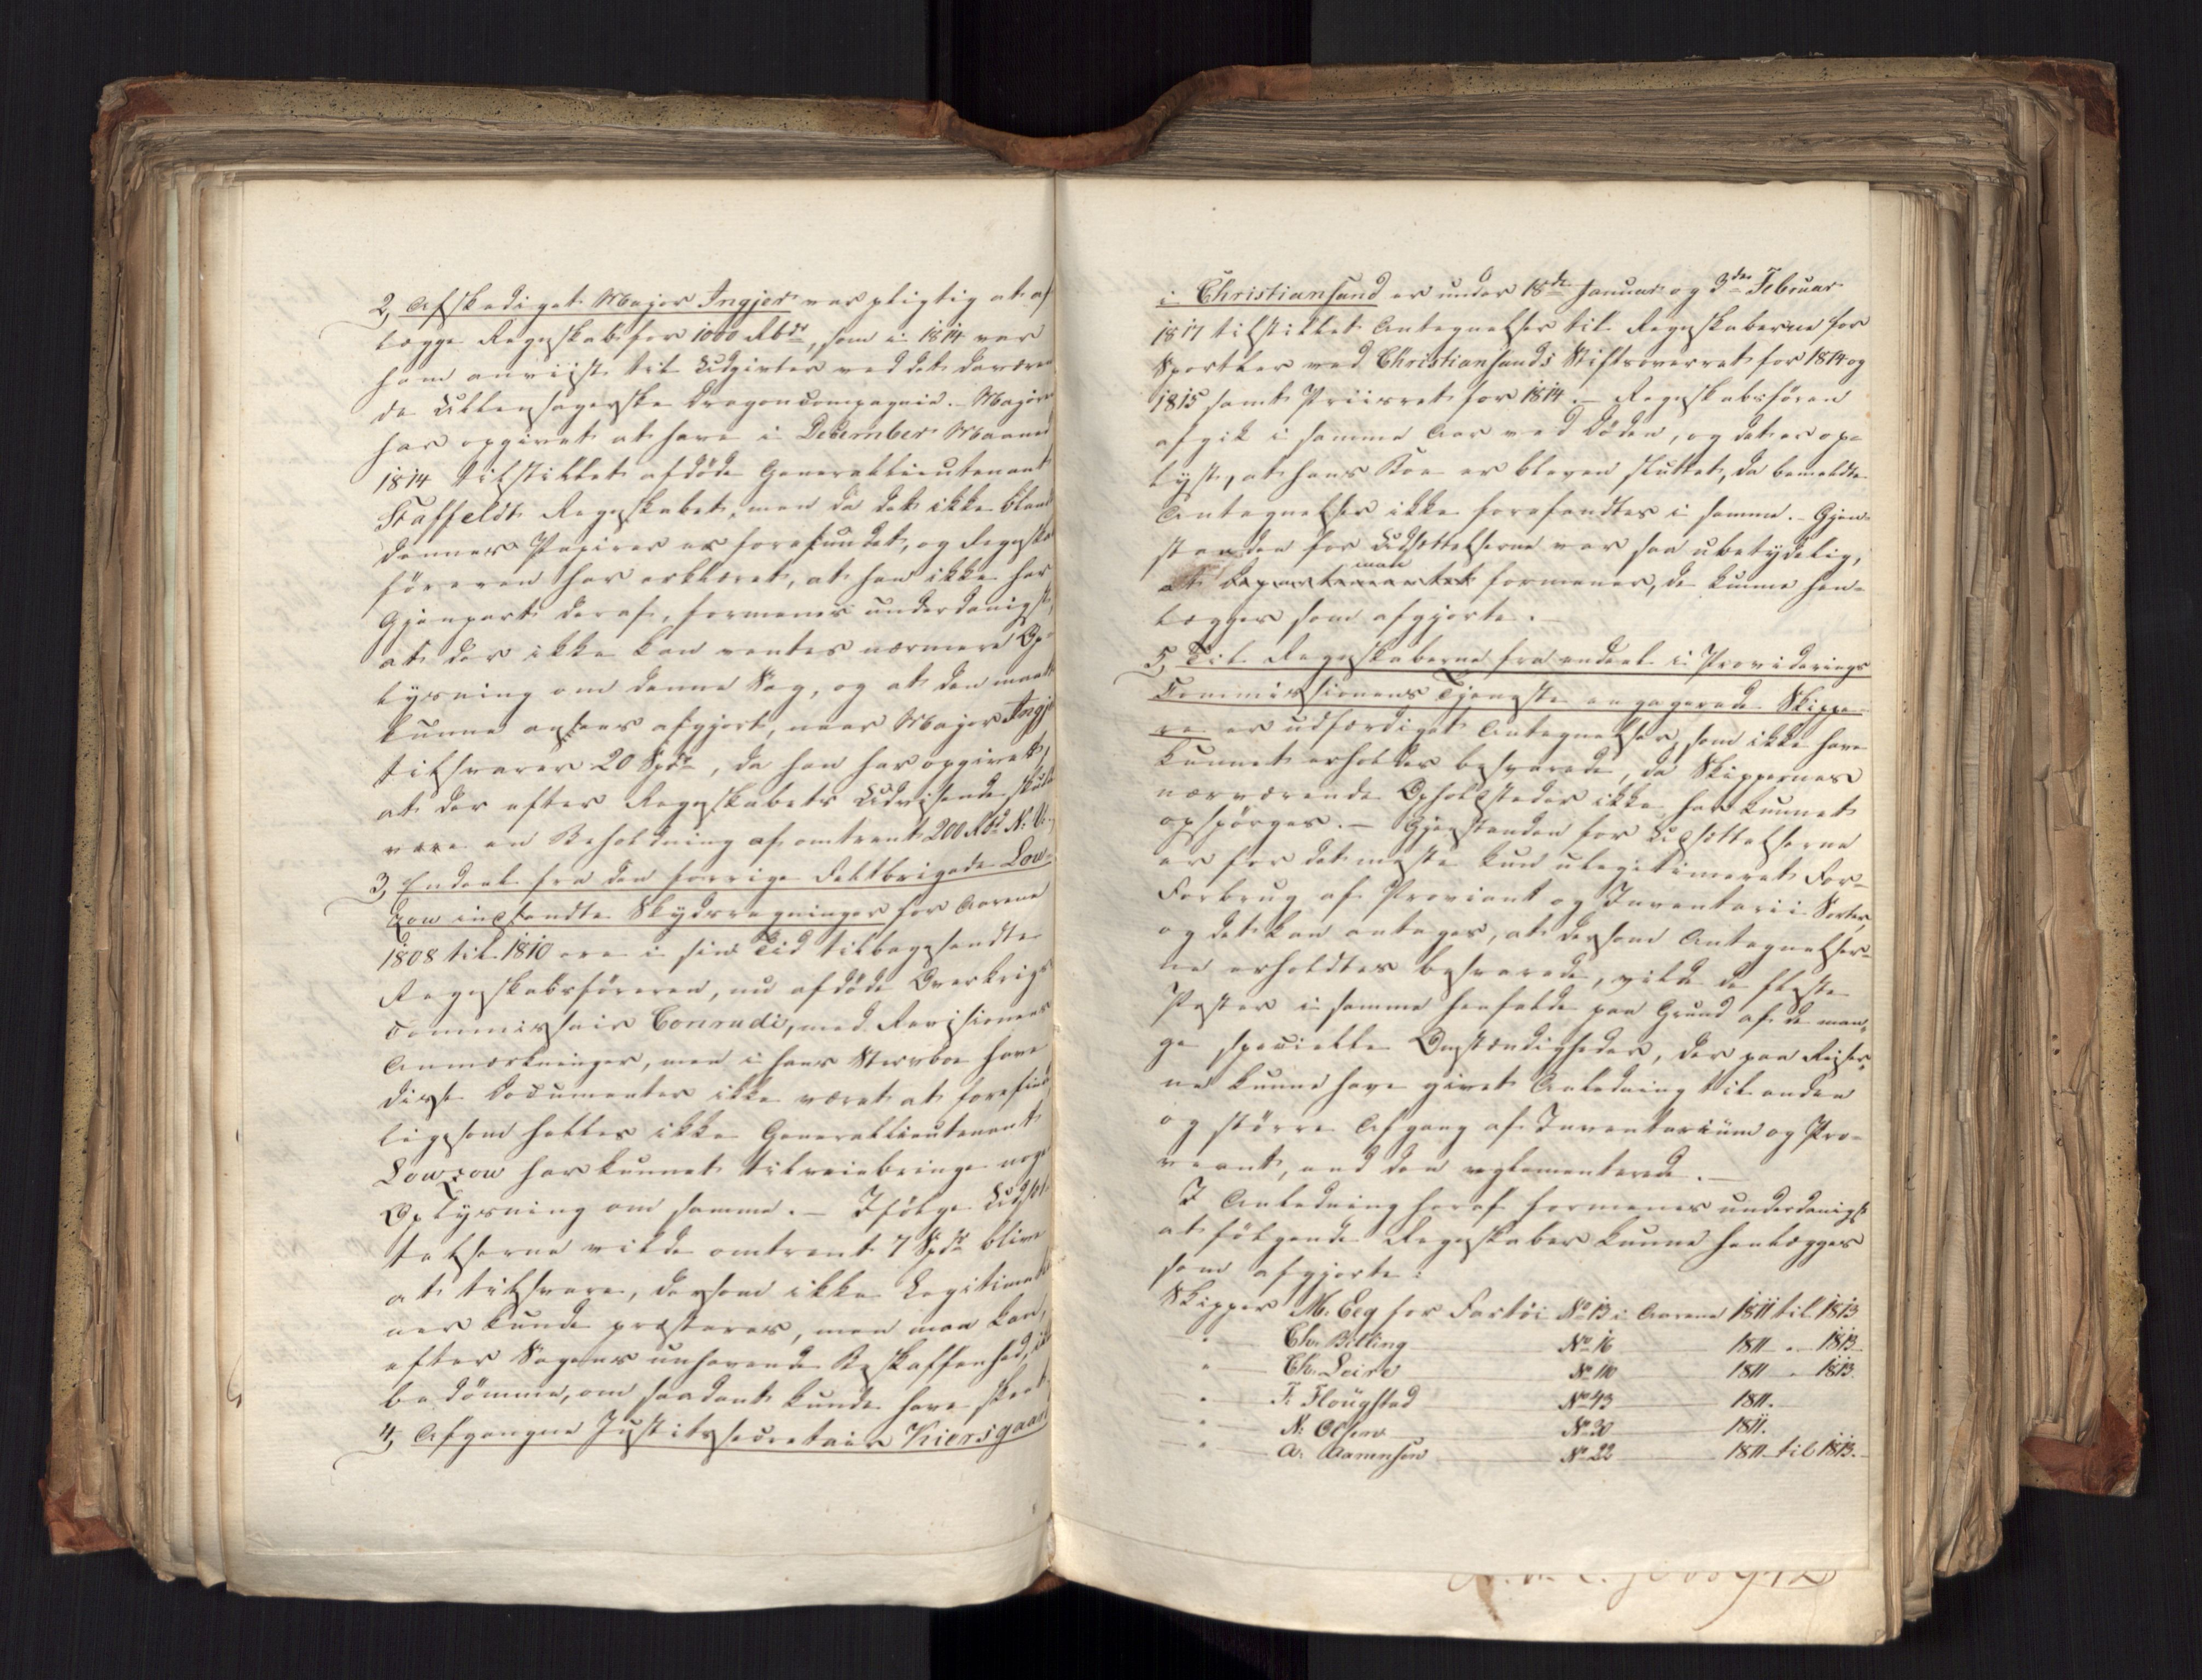 2, Afskediget Major Ingjer var pligtig at af
lægge Regnskab for 1000 Rbdr, som i 1814 var
ham anviist til Udgivter ved det daværen
de Ullensagerske Dragoncompagnie. Majoren
har opgivet at have i December Maaned
1814 tilstillet afdøde Generallieutenant
Staffeldt Regnskabet, men da det ikke blandt
dennes Papirer er forefundet, og Regnskabs
føreren har erklæret, at han ikke har
Gjenpart deraf, formenes underdanigst,
at der ikke kan ventes nærmere Op-
lysning om denne Sag, og at den maatte
kunne ansees afgjort, naar Major Ingjer
tilsvarer 20 Spdr, da han har opgivet,
at der efter Regnskabets Udvisende skulde
være en Beholdning af omtrent 200 Rbd N. V.
3, Endeel fra den forrige Feltbrigade Low-
zow indsendte Skydsregninger for Aarene
1808 til 1810 ere i sin Tid tilbagesendte
Regnskabsføreren, nu afdøde Overkrigs
Commissair Conradi, med Revisionens
Anmærkninger, men i hans Stervboe have
disse Documenter ikke været at forefinde
ligesom heller ikke Generallieutenant
Lowzow har kunnet tilveiebringe nogen
Oplysning om samme. – Ifølge Udsæt
telserne vilde omtrent 7 Spdr blive
at tilsvare, dersom ikke Legitimatio
ner kunde præsteres, men man kan,
efter Sagens unhavende Beskaffenhed, ikke
bedømme, om saadant kunde have skeet
4, Afgangne Justitssecretair Kiersgaard
i Christiansand er under 18de Januar og 3die Februar
1817 tilstillet Antegnelser til Regnskaberne for
Sportler ved Christiansands Stiftsoverret for 1814 og
1815 samt Priisret for 1814. – Regnskabsføren
afgik i samme Aar ved Døden, og det er op-
lyst, at hans Boe er bleven sluttet, da bemeldte
Antegnelser ikke forefandtes i samme. – Gjen-
standen for Udsættelserne var saa ubetydelig,
man
at Departementet formener, de kunne hen-
lægges som afgjorte. –
5, Til Regnskaberne fra endeel i Providerings
Commissionens Tjeneste engagerede Skippe-
re er udfærdiget Antegnelser, som ikke have
kunnet erholdes besvarede, da Skippernes
nærværende Opholdssteder ikke har kunnet
opspørges. – Gjenstanden for Udsættelserne
er for det meste kun ulegitimeret For-
Forbrug af Proviant og Inventarii Sorter,
og det kan antages, at dersom Antegnelser-
ne erholdtes besvarede, vilde de fleste
Poster i samme henfalde paa Grund af de man-
ge specielle Omstændigheder, der paa Reiser-
ne kunne have givet Anledning til anden
og større Afgang af Inventarium og Pro-
viant, end den reglementerede. –
I Anledning heraf formenes underdanigst
at følgende Regnskaber kunne henlægges
som afgjorte:
Skipper M. Eeg for Fartøi No 13 i Aarene 1811 til 1813
" Chr. Billing No 16 1811 " 1813
" Chr. Leire No 110 1811 " 1813.
" T. Flougstad No 43 1811.
" N. Olsen No 30 1811.
" A. Aamensen No 22 1811 til 1813.